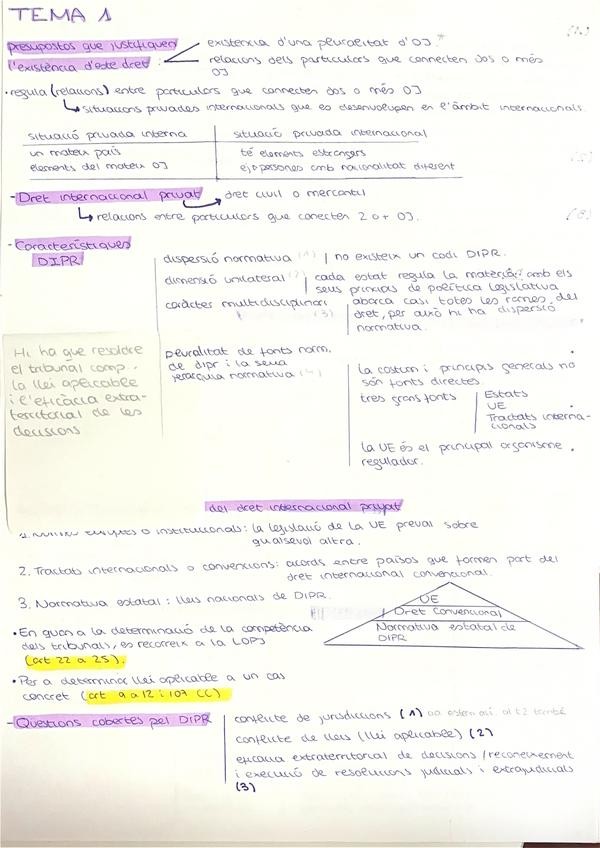 TEMA 1
presupostos que justifiquen
l'existència d'este dret:
existencia d'una pluralitat d'OJ.*
relacions dels particulars que connecten dos o més
OJ
• regula (relacions) entre particulars que connecten dos o més OJ
↳ situacions privades internacionals que es desenvolupen en l'àmbit internacionals.
situació privada interna | situació privada internacional
un mateix país | té elements estrangers
elements del mateix OJ | ej: persones amb nacionalitat diferent
- Dret internacional privat → dret civil o mercantil
↳ relacions entre particulars que conecten 2 o + OJ.
- Característiques
DIPR
dispersió normativa (1) | no existeix un codi DIPR.
dimensió unilateral (2) | cada estat regula la matèria amb els
seus principis de política legislativa
caràcter multidisciplinari
(3)
abarca casi totes les rames del
dret, per això hi ha dispersió
normativa.
pluralitat de fonts norm.
de dipr i la seua
jerarquia normativa (4)
la costum i principis generals no
són fonts directes.
tres grans fonts | Estats
UE
Tractats interna-
cionals
la UE és el principal organisme
regulador.
Hi ha que resoldre
el tribunal comp.,
la llei aplicable
i l'eficàcia extra-
territorial de les
decisions
del dret internacional privat
o institucionals: la legislació de la UE preval sobre
qualsevol altra.
2. Tractats internacionals o convencions: acords entre països que formen part del
dret internacional convencional.
3. Normativa estatal: lleis nacionals de DIPR.
UE
Dret Convencional
Normativa estatal de
DIPR
• En quan a la determinació de la competència
dels tribunals, es recorreix a la LOPJ
(art 22 a 25).
• Per a determinar llei aplicable a un cas
concret (art 9 a 12 i 107 CC)
- Questions cobertes pel DIPR
conflicte de jurisdiccions (1)
conflicte de lleis (llei aplicable) (2)
eficacia extraterritorial de decisions / reconeixement
i execució de resolucions judicials i extrajudicials
(3)